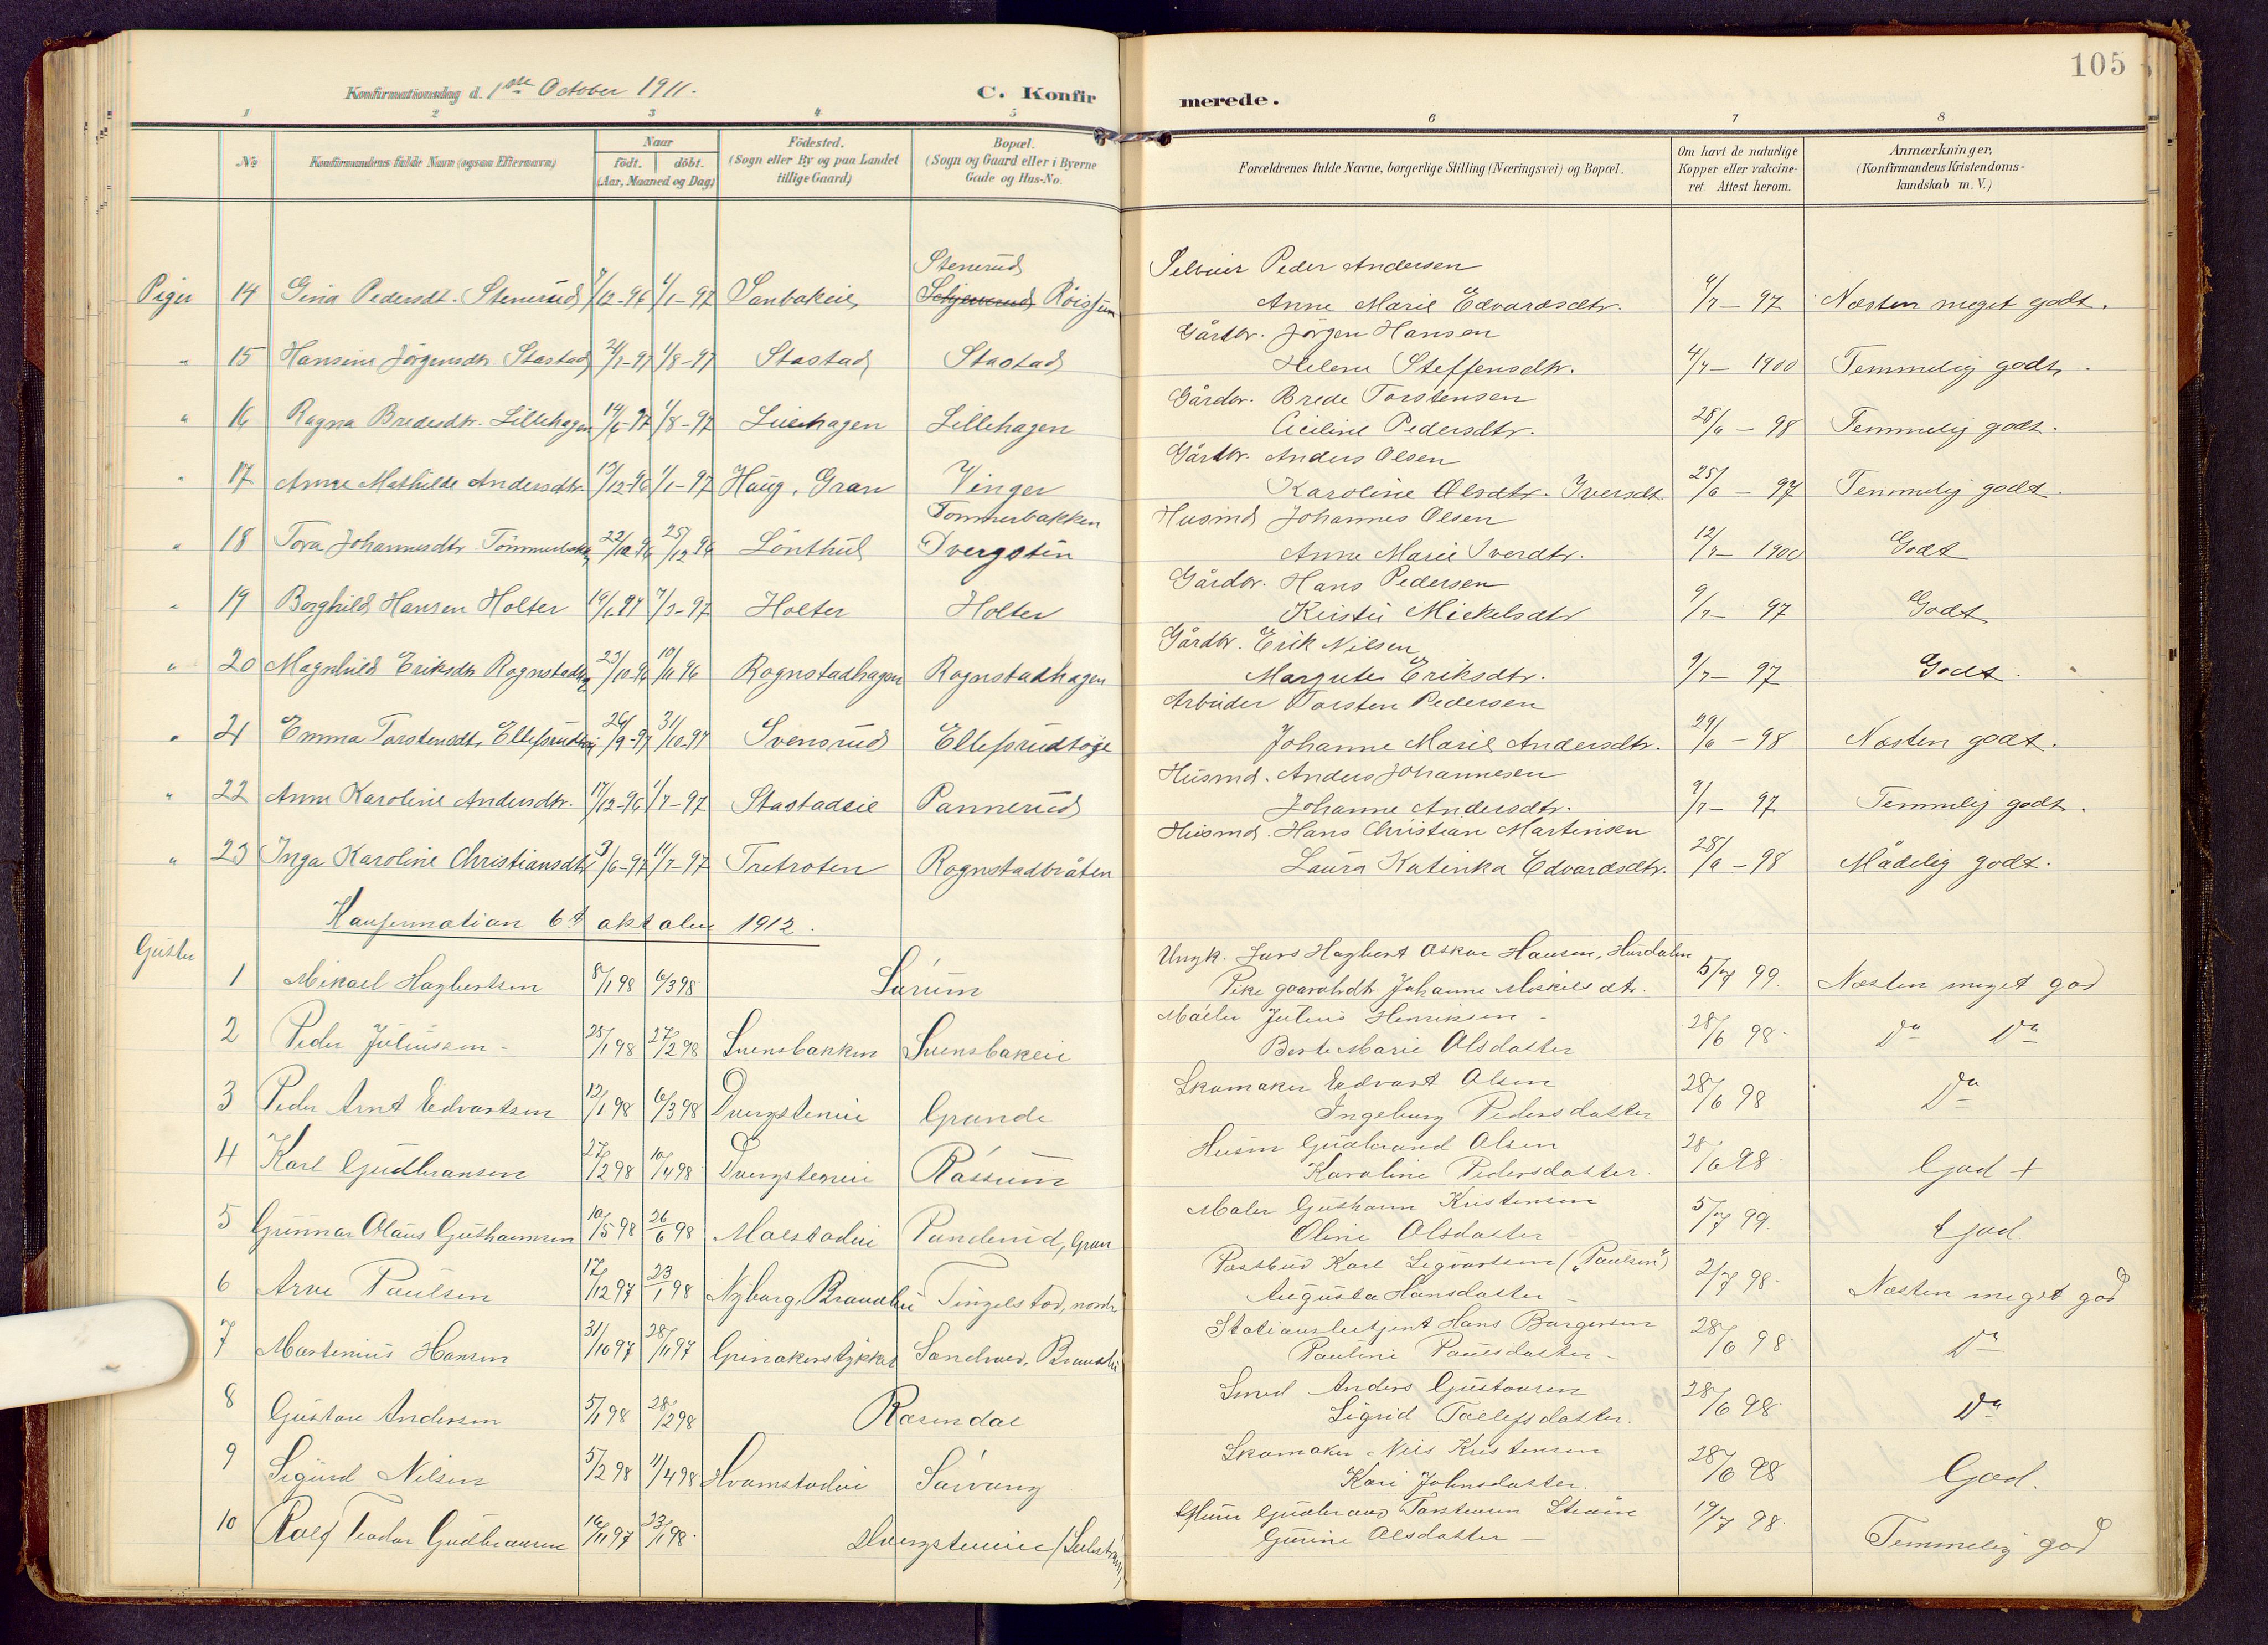 105
Konfirmationsdag d. 1ste October 1911.
C. Konfirmerede.
1 2 3 4 5 6 7 8
№
Konfirmandens fulde Navn (ogsaa Efternavn)
Naar
födt. döbt.
(Aar, Maaned og Dag)
Födested.
(Sogn eller By og paa Landet
tillige Gaard)
Bopæl.
(Sogn og Gaard eller i Byerne
Gade og Hus-No.
Forældrenes fulde Navne, borgerlige Stilling (Næringsvei) og Bopæl.
Om havt de naturlige
Kopper eller vaccine-
ret. Attest herom.
Anmærkninger,
(Konfirmandens Kristendoms-
kundskab m. V.)
Stenerud Peder Andersen
Piger 14 Gina Pedersdt. Stenerud 7/12-96 1/1-97 Röissum Anne Marie Edvardsdtr. 97 Næsten meget godt.
Gårdbr. Jörgen Hansen
" 15 Hansine Jörgensdtr. Stastad 24/7-97 1/8-97 Stastad Stastad Helene Steffensdtr. 1900 Temmelig godt.
Gårdbr. Brede Torstensen
" 16 Ragna Bredesdtr. Lillehagen 14/6-97 1/8-97 Lillehagen Lillehagen Ciciline Pedersdtr. 28/6-98 Temmelig godt.
Gårdbr. Anders Olsen
" 17 Anne Mathilde Andersdtr. 13/12-96 1/1-97 Haug, Gran Vinger Karoline Olsdtr. Iversdt 25/6-97 Temmelig godt.
Tömmerbakken Husmd Johannes Olsen
" 18 Tora Johannesdtr. 22/10 96 25/12 96 Lönthul Dvergsten Anne Marie Iverdtr. 12/7-1900 Godt
Gårdbr. Hans Pedersen
" 19 Borghild Hansen Holter 7/3-97 Holter Holter Kirsti Mickelsdtr 9/7-97 Godt
Gårdbr. Erik Nilsen
" 20 Magnhild Eriksdtr Rognstadhag 23/10-96 10/11 96 Rognstadhagen Rognstadhagen Margrete Eriksdtr. 9/7-97 Godt.
Arbeider Torsten Pedersen
" 21 Emma Torstensdtr. 26/9-97 31/10-97 Svensrud Johanne Marie Andersdtr. 29/6-98 Næsten godt.
Husmd. Anders Johannesen
" 22 Anne Karoline Andersdtr. 17/12-96 1/7-97 Stastadeie Pannerud Johanne Andersdtr. 9/7-97 Temmelig godt.
Husmd. Hans Christian Martinsen
" 23 Inga Karoline Christiansdtr 3/6-97 11/7-97 Rognstadbråten Laura Katinka Edvardsdtr. 28/6-98 Mådelig godt.
Konfirmation 6t oktober 1912.
Gutter Ungk. Lars Hagbert Oskar Hansen, Hurdalen
1 Mikael Hagbertsen 8/1 98 6/3 98 Sörum Pike Johanne Miskilsdtr. 5/7 99. Næsten meget god
Maler Julius Henriksen
2 Peder Juliussen 25/1 98 27/2 98 Svensbakken Svensbakeie Berte Marie Olsdatter 28/6 98 Do Do
Skomaker Edvart Olsen
3 Peder Arnt Edvartsen 12/1 98 6/3 98 Dvergsteneie Grande Ingeborg Pedersdatter 28/6 98 Do
Husm Gudbrand Olsen
4 Karl Gudbransen 27/2 98 10/4 98 Dvergsteneie Røssum Karoline Pedersdatter 28/6 98 God +
Maler Gusthavn Kristensen
5 Gunnar Olaus Gusthavnsen 10/5 98 26/6 98 Molstadeie Pundenid, Gran Oline Olsdatter 5/7 99. God.
Postbud Karl Sigvartsen ("Paulsen")
6 Arne Paulsen 17/12 97 23/1 98 Nyborg, Brandbu Tingelstad, nordr Augusta Hansdatter 2/7 98 Næsten meget god
Stationsbetjent Hans Børgersen
7 Martinius Hansen 31/10 97 28/11 97 Grinakerstykket Sandvol, Brandbu Pauline Paulsdatter 28/6 98 Do
Smed Anders Gustavsen
8 Gustav Andersen 5/1 98 28/2 98 Rosendal Sigrid Tollefsdatter. 28/6 98 Do
Skomaker Nils Kristensen
9 Sigurd Nilsen 5/2 98 11/4 98 Hvamstadeie Solvang Kari Johnsdatter. 28/6 98 God.
Husm Gudbrand Torstensen
10 Rolf Teodor Gudbransen 16/11 97 23/1 98 Dvergsteneie Gurine Olsdatter 19/7 98 Temmelig god